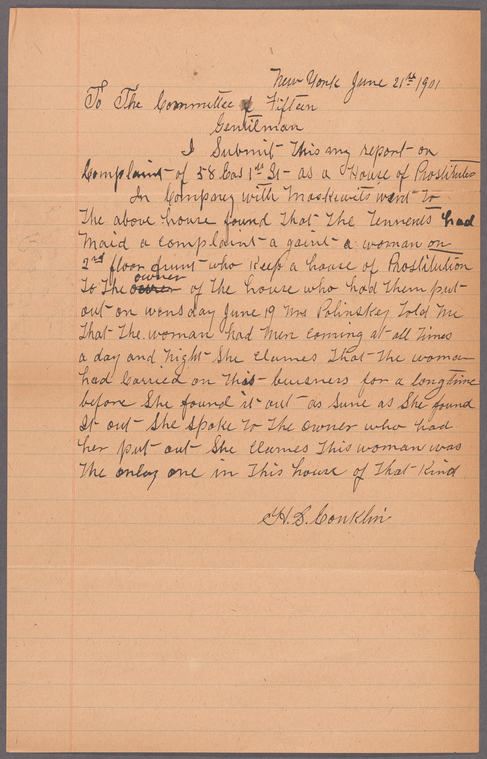 New York June 21st 1901
To The Committee of Fifteen
Gentilman
I Submit This my report on
Complaint of 58 Eas 1st St as a House of Prostitutes
In Company with Moskiwits went To
The above house found That The Tennents had
maid a complaint a gaint a woman on
2nd floor frunt who Keep a house of Prostitution
owner
To The owner of The house who had Them put
out on wensday June 19 Mrs Polinskey Told Me
That The woman had Men Coming at all Times
a day and Night She Clames That The woman
had Carried on This buisners for a longtime
before She found it out as Sune as She found
It out She Spoke To The Owner who had
her put out She Clames This woman was
The only one in This house of That Kind
H. S. Conklin